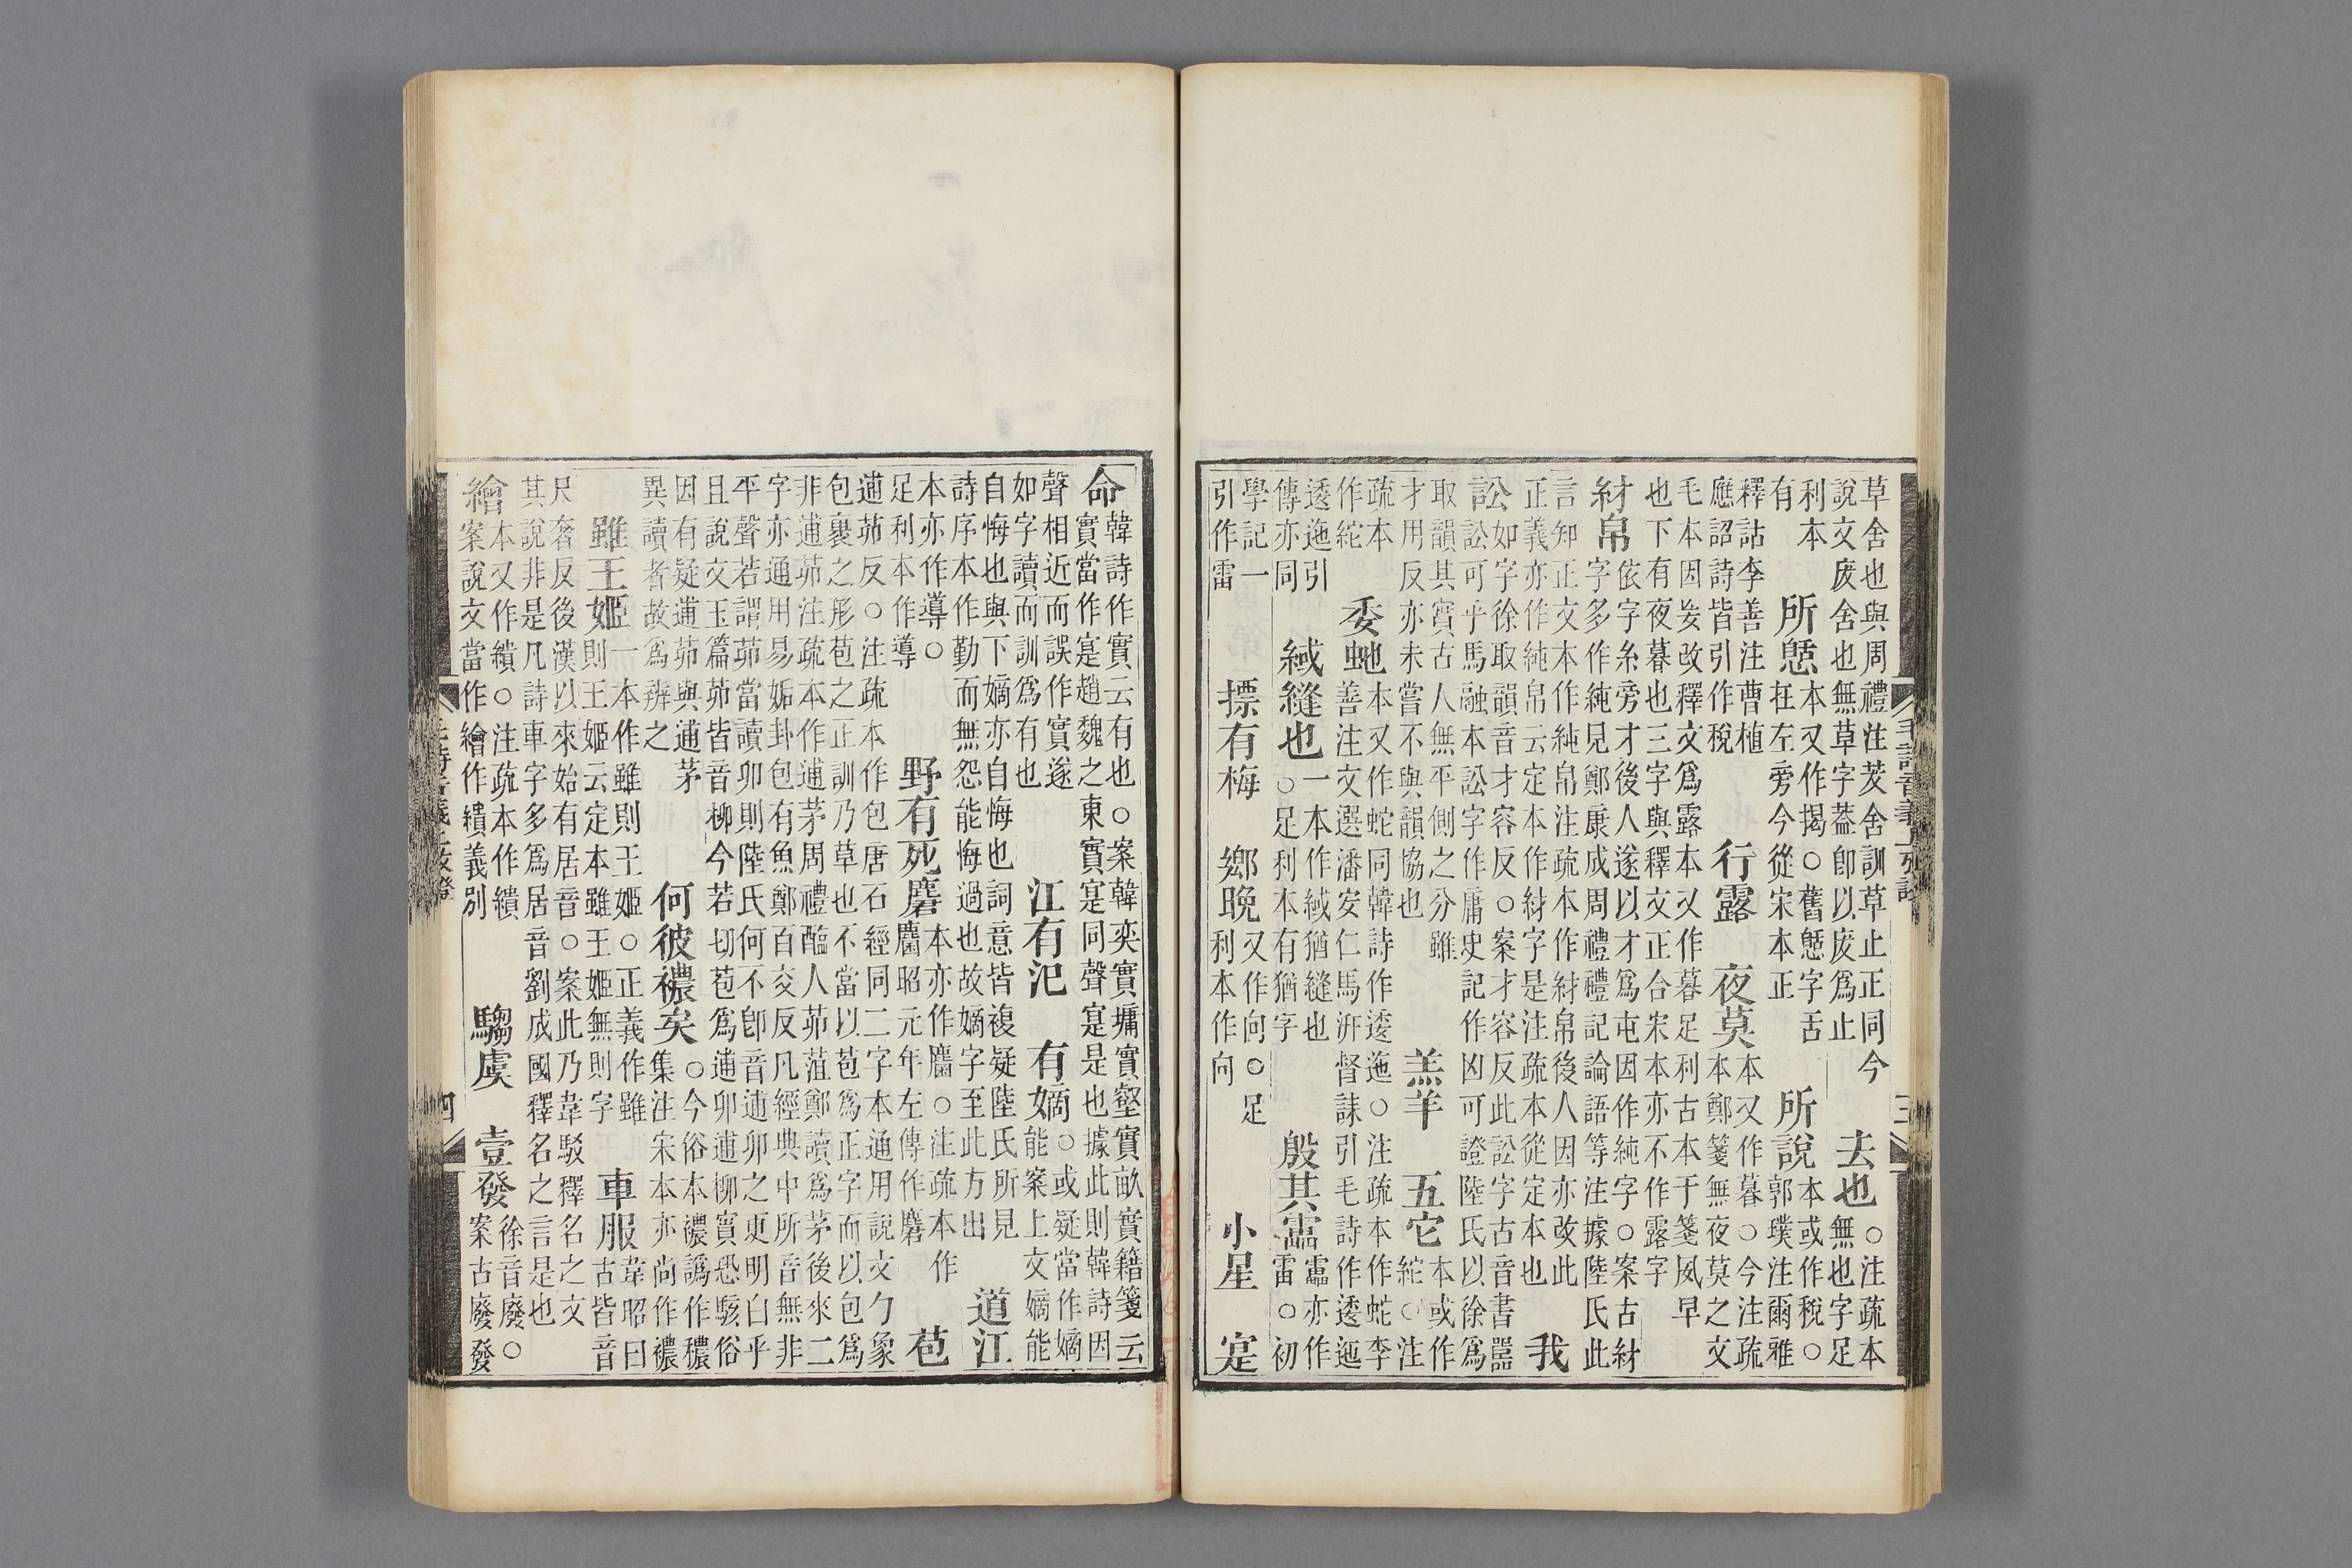 草舍也與周禮注茇舍訓草止正同今
說文废舍也無草字葢卽以废爲止
去也
○注疏本
無也字足
利本
有
所憇
本又作揭○舊憇字舌
在左旁今從宋本正
所說
本或作稅○
郭璞注爾雅
釋詁李善注曹植
應詔詩皆引作稅
行露 夜莫
本又作暮○今注疏
本鄭箋無夜莫之文
毛本因妄改釋文爲露本又作暮足利古本于箋夙早
也下有夜暮也三字與釋文正合宋本亦不作露字
紂帛
依字糸旁才後人遂以才爲屯因作純字○案古紂
字多作純見鄭康成周禮禮記論語等注據陸氏此
言知正文本作純帛注疏本作紂帛後人因亦改此
正義亦作純帛云定本作紂字是注疏本從定本也
我
訟
如字徐取韻音才容反○案才容反此訟字古音書嚚
訟可乎馬融本訟字作庸史記作凶可證陸氏以徐爲
取韻其實古人無平側之分雖
才用反亦未嘗不與韻協也
羔羊 五它
本或作
紽○注
疏本
作紽
委虵
本又作蛇同韓詩作逶迤○注疏本作蛇李
善注文選潘安仁馬汧督誄引毛詩作逶迤
逶迤引
傳亦同
緎縫也
一本作緎猶縫也
○足利本有猶字
殷其靁
靁亦作
雷○初
學記一
引作雷
摽有梅 鄉晚
又作向○足
利本作向
小星 寔
命
韓詩作實云有也○案韓奕實墉實壑實畝實籍箋云
實當作寔趙魏之東實寔同聲寔是也據此則韓詩因
聲相近而誤作實遂
如字讀而訓爲有也
江有汜 有嫡
○或疑當作嫡
能案上文嫡能
自悔也與下嫡亦自悔也詞意皆複疑陸氏所見
詩序本作勤而無怨能悔過也故嫡字至此方出
道江
本亦作導○
足利本作導
野有死麕
本亦作麏○注疏本作
麕昭元年左傳作麏
苞
逋茆反○注疏本作包唐石經同二字本通用說文勹象
包裹之形苞之正訓乃草也不當以苞爲正字而以包爲
非逋茆注疏本作逋茅周禮醢人茆菹鄭讀爲茅後來二
字亦通用易姤卦包有魚鄭百交反凡經典中所音無非
平聲若謂茆當讀卯則陸氏何不卽音逋卯之更明白乎
且說文玉篇茆皆音柳今若切苞爲逋卯逋柳實恐駭俗
因有疑逋茆與逋茅
異讀者故爲辨之
何彼襛矣
○今俗本襛譌作穠
集注宋本亦尚作襛
雖王姬
一本作雖則王姬○正義作雖
則王姬云定本雖王姬無則字
車服
韋昭曰
古皆音
尺奢反後漢以來始有居音○案此乃韋駁釋名之文
其說非是凡詩車字多爲居音劉成國釋名之言是也
繪
本又作繢○注疏本作繢
案說文當作繪作繢義別
騶虞 壹發
徐音廢○
案古廢發
四